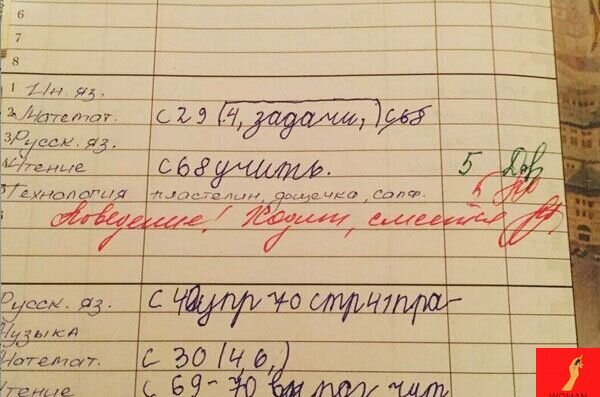 6
7
8
1 Ин. яз.
2 Математ. с 29 (4, задачи,) с68
3 Русск. яз.
4 Чтение с68 учить. 5
5 Технология пластелин, дощечка, салф. 5
6 Поведение! Ходит, смеется
Русск. яз. с 40 упр 70 стр 41 пра-
Музыка
Математ. с 30 (4, 6,)
Чтение с 69-70
WOMAN